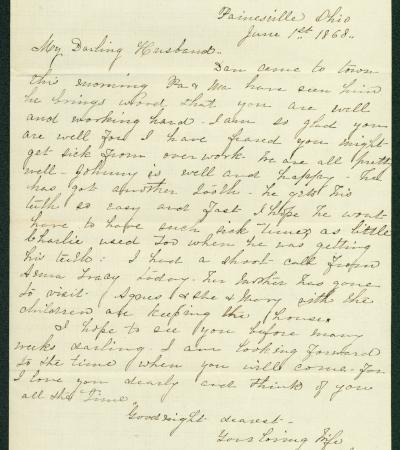 Painesville Ohio
June 1st 1868.
My Darling Husband.
Dan came to town
this morning Pa & Ma have seen him
he brings word that you are well
and working hard. I am so glad you
are well for I have feared you might
get sick from over work we are all pretty
well. Johnny is well and happy. he
has got another tooth. he gets his
teeth so easy and fast I hope he wont
have to have such sick times as little
Charlie used too when he was getting
his teeth. I had a short call from
Anna Tracy today. her mother has gone
to visit Agnes & she & Mary with the
children are keeping the house.
I hope to see you before many
weeks darling. I am looking forward
to the time when you will come. for
I love you dearly and think of you
all the time
Goodnight dearest.
Your loving Wife